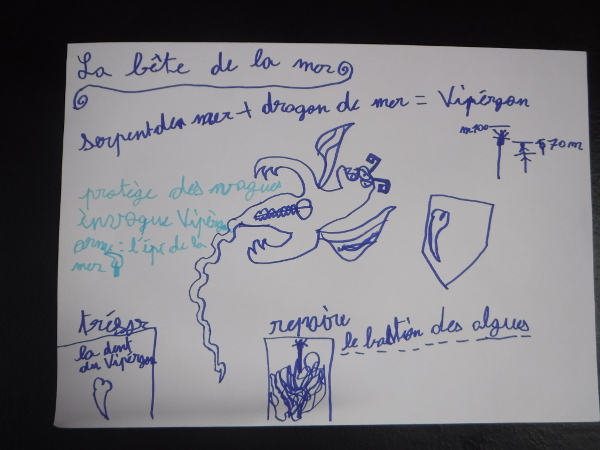 La bête de la mer
serpent den mer + dragon de mer = Vipérgon
m100
70m
protège des nvagues
invoque Vipérgon
arme : l'épé de la
mer
trésor
la dent
du Vipérgon
repaire
le bastion des algues